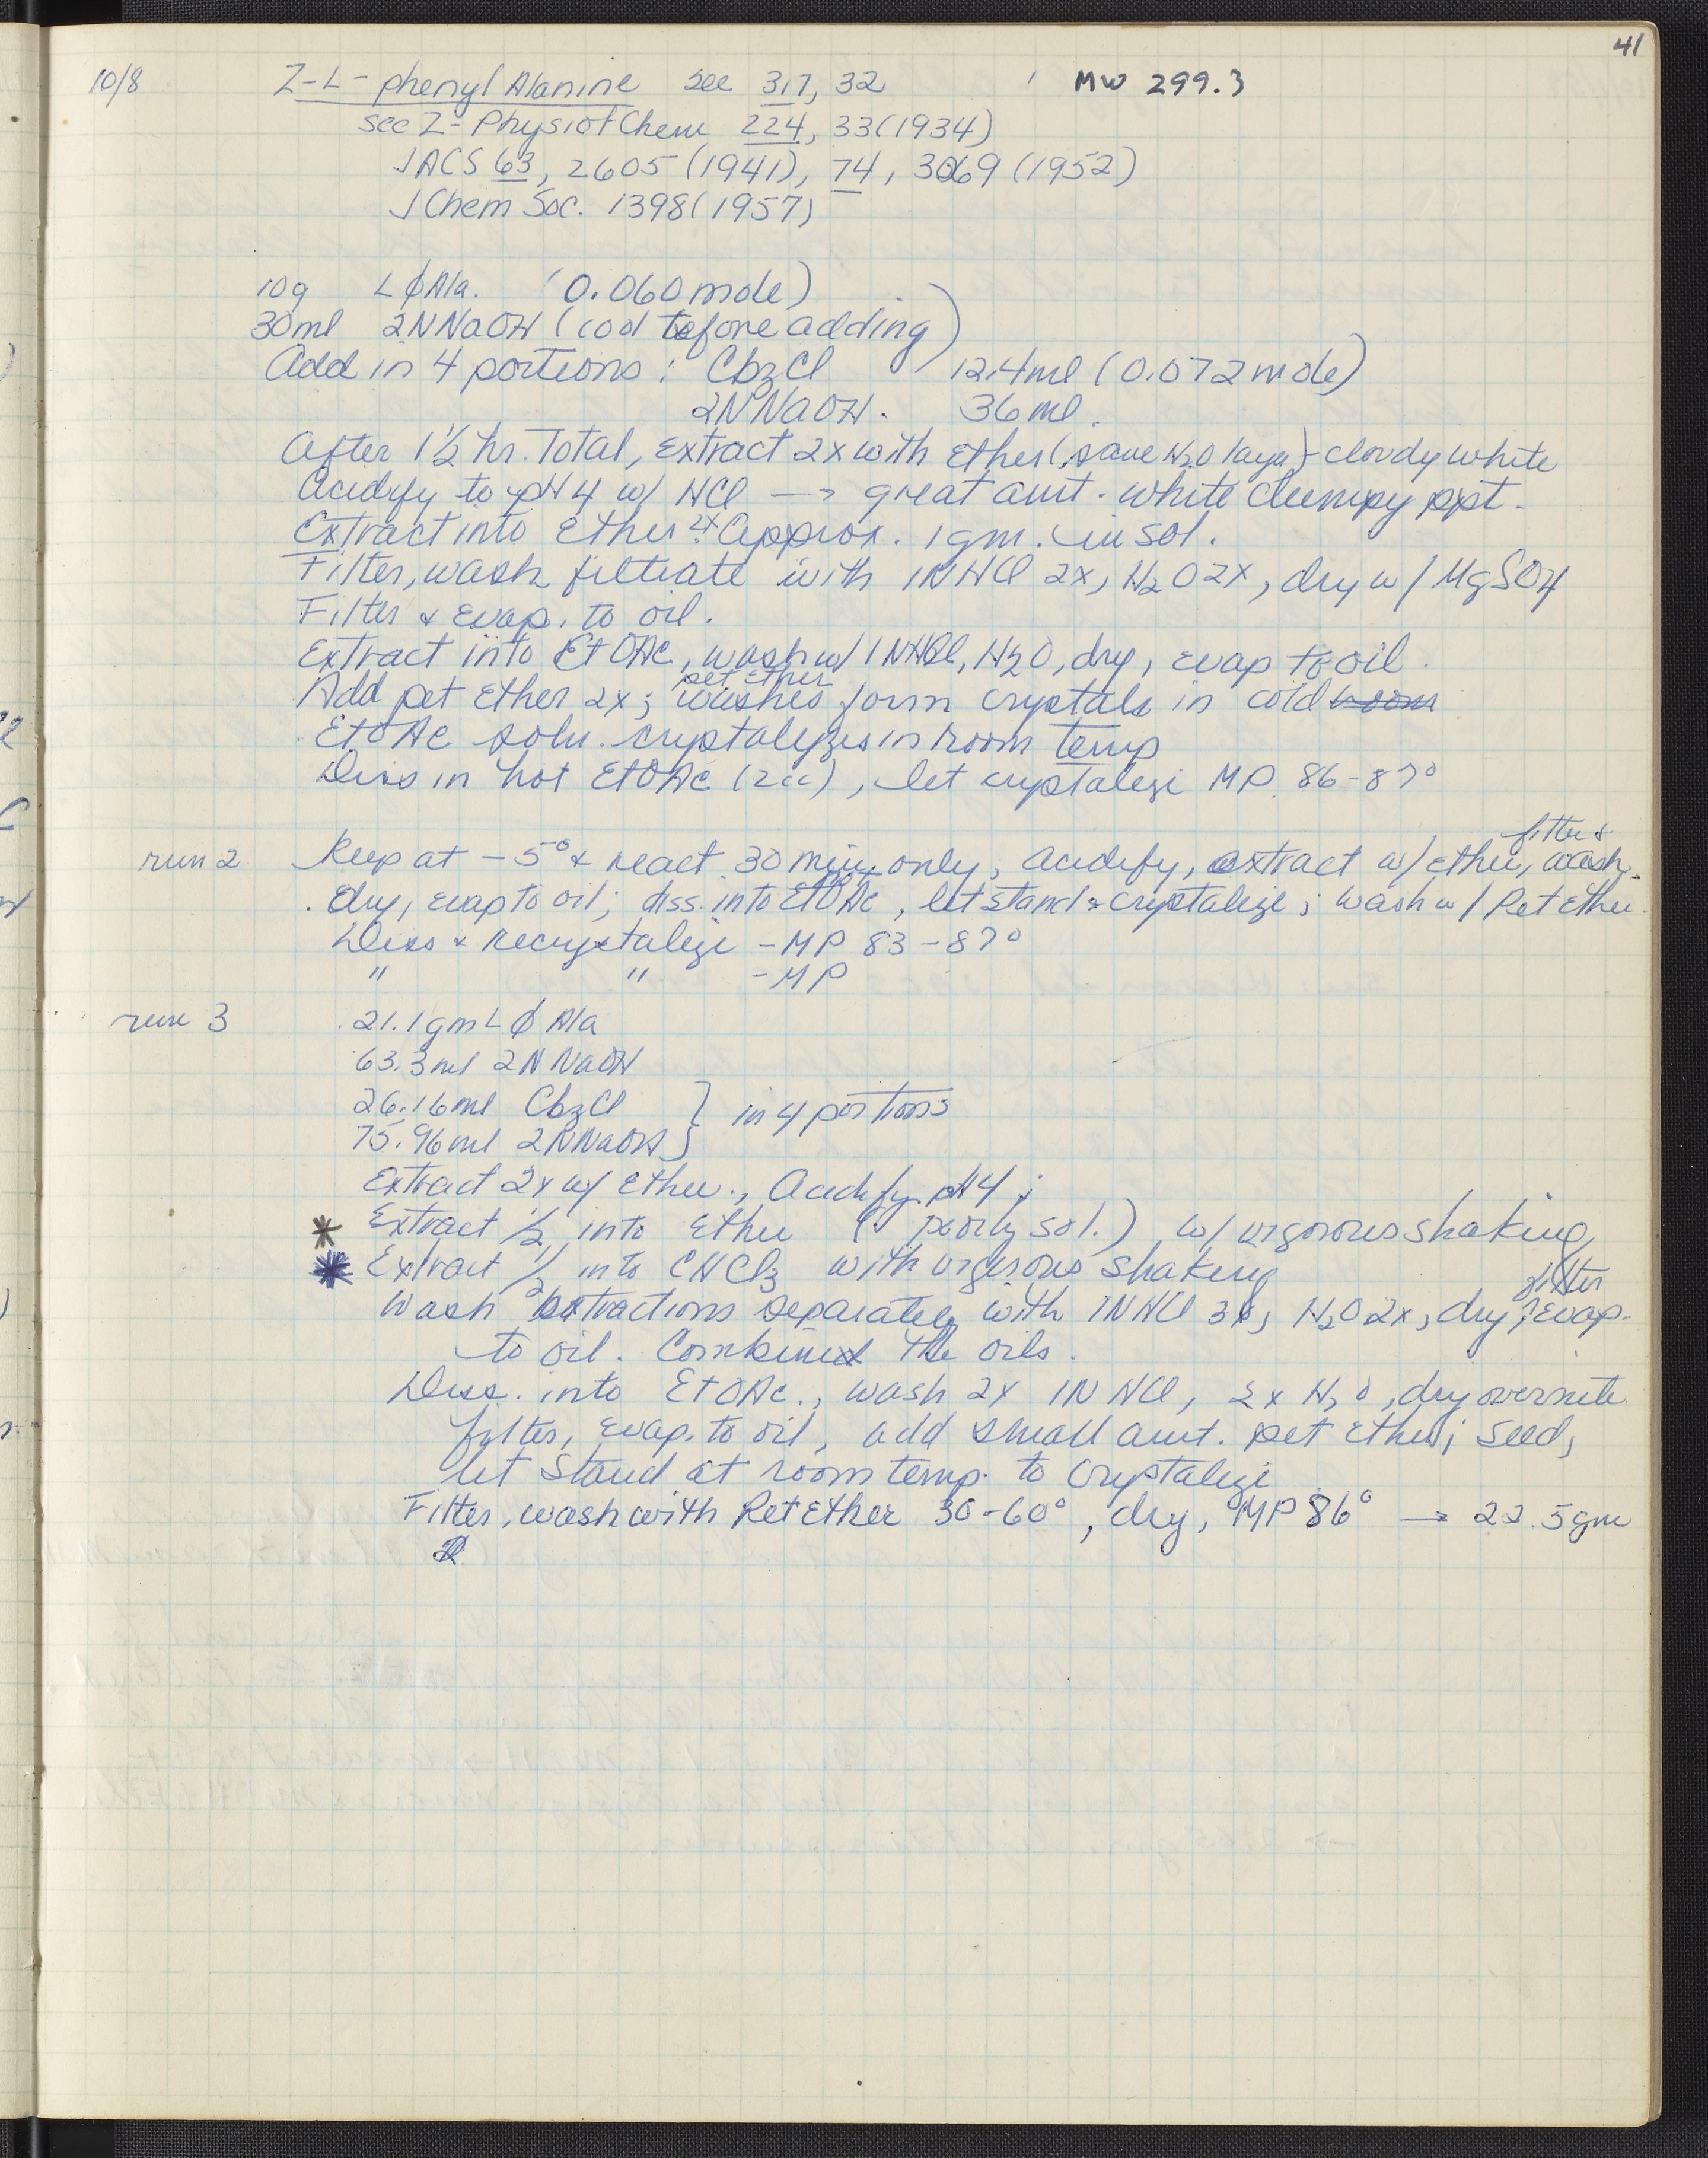 41
10/8 Z-L-phenyl Alanine see 317, 32 MW 299.3
see Z-Physiol Chem 224, 33 (1934)
JACS 63, 2605 (1941), 74, 3069 (1952)
J Chem Soc. 1398 (1957)
10g L ϕ Ala. (0.060 mole)
30ml 2N NaOH (cool before adding)
Add in 4 portions: CbzCl 12.4ml (0.072 mole)
2N NaOH. 36 ml.
After 1 1/2 hr. Total, extract 2x with Ether (save H2O layer) - cloudy white
Acidify to pH 4 w/ HCl → great amt. white clumpy ppt.
Extract into Ether 2x Approx. 1 gm. insol.
Filter, wash filtrate with 1N HCl 2x, H2O 2x, dry w/ MgSO4
Filter & evap. to oil.
Extract into EtOAc, wash w/ 1N HCl, H2O, dry, evap to oil.
Add pet Ether 2x; pet ether washes form crystals in cold room
EtOAc soln. crystalyzes in room temp
Diss in hot EtOAc (2cc), let crystalize MP. 86-87°
run 2 Keep at -5° & react 30 min only, acidify, extract w/ ether, filter & wash,
dry, evap to oil; diss. into hot EtOAc, let stand & crystalize; wash w/ Pet Ether.
Diss & recrystalize - MP 83-87°
" " - MP
run 3 21.1 gm L ϕ Ala
63.3 ml 2N NaOH
26.16 ml CbzCl } in 4 portions
75.96 ml 2N NaOH }
Extract 2x w/ Ether., Acidify pH 4;
* Extract 1/2 into Ether (poorly sol.) w/ vigorous shaking
* Extract 1/2 into CHCl3 with vigerous shaking
Wash extractions separately with 1N HCl 3x, H2O 2x, dry, filter, evap.
to oil. Combined the oils.
Diss. into EtOAc., wash 2x 1N HCl, 2x H2O, dry overnite
filter, evap. to oil, add small amt. pet ether; seed,
let stand at room temp. to crystalize
Filter, wash with Pet Ether 30-60°, dry, MP 86° → 22.5 gm